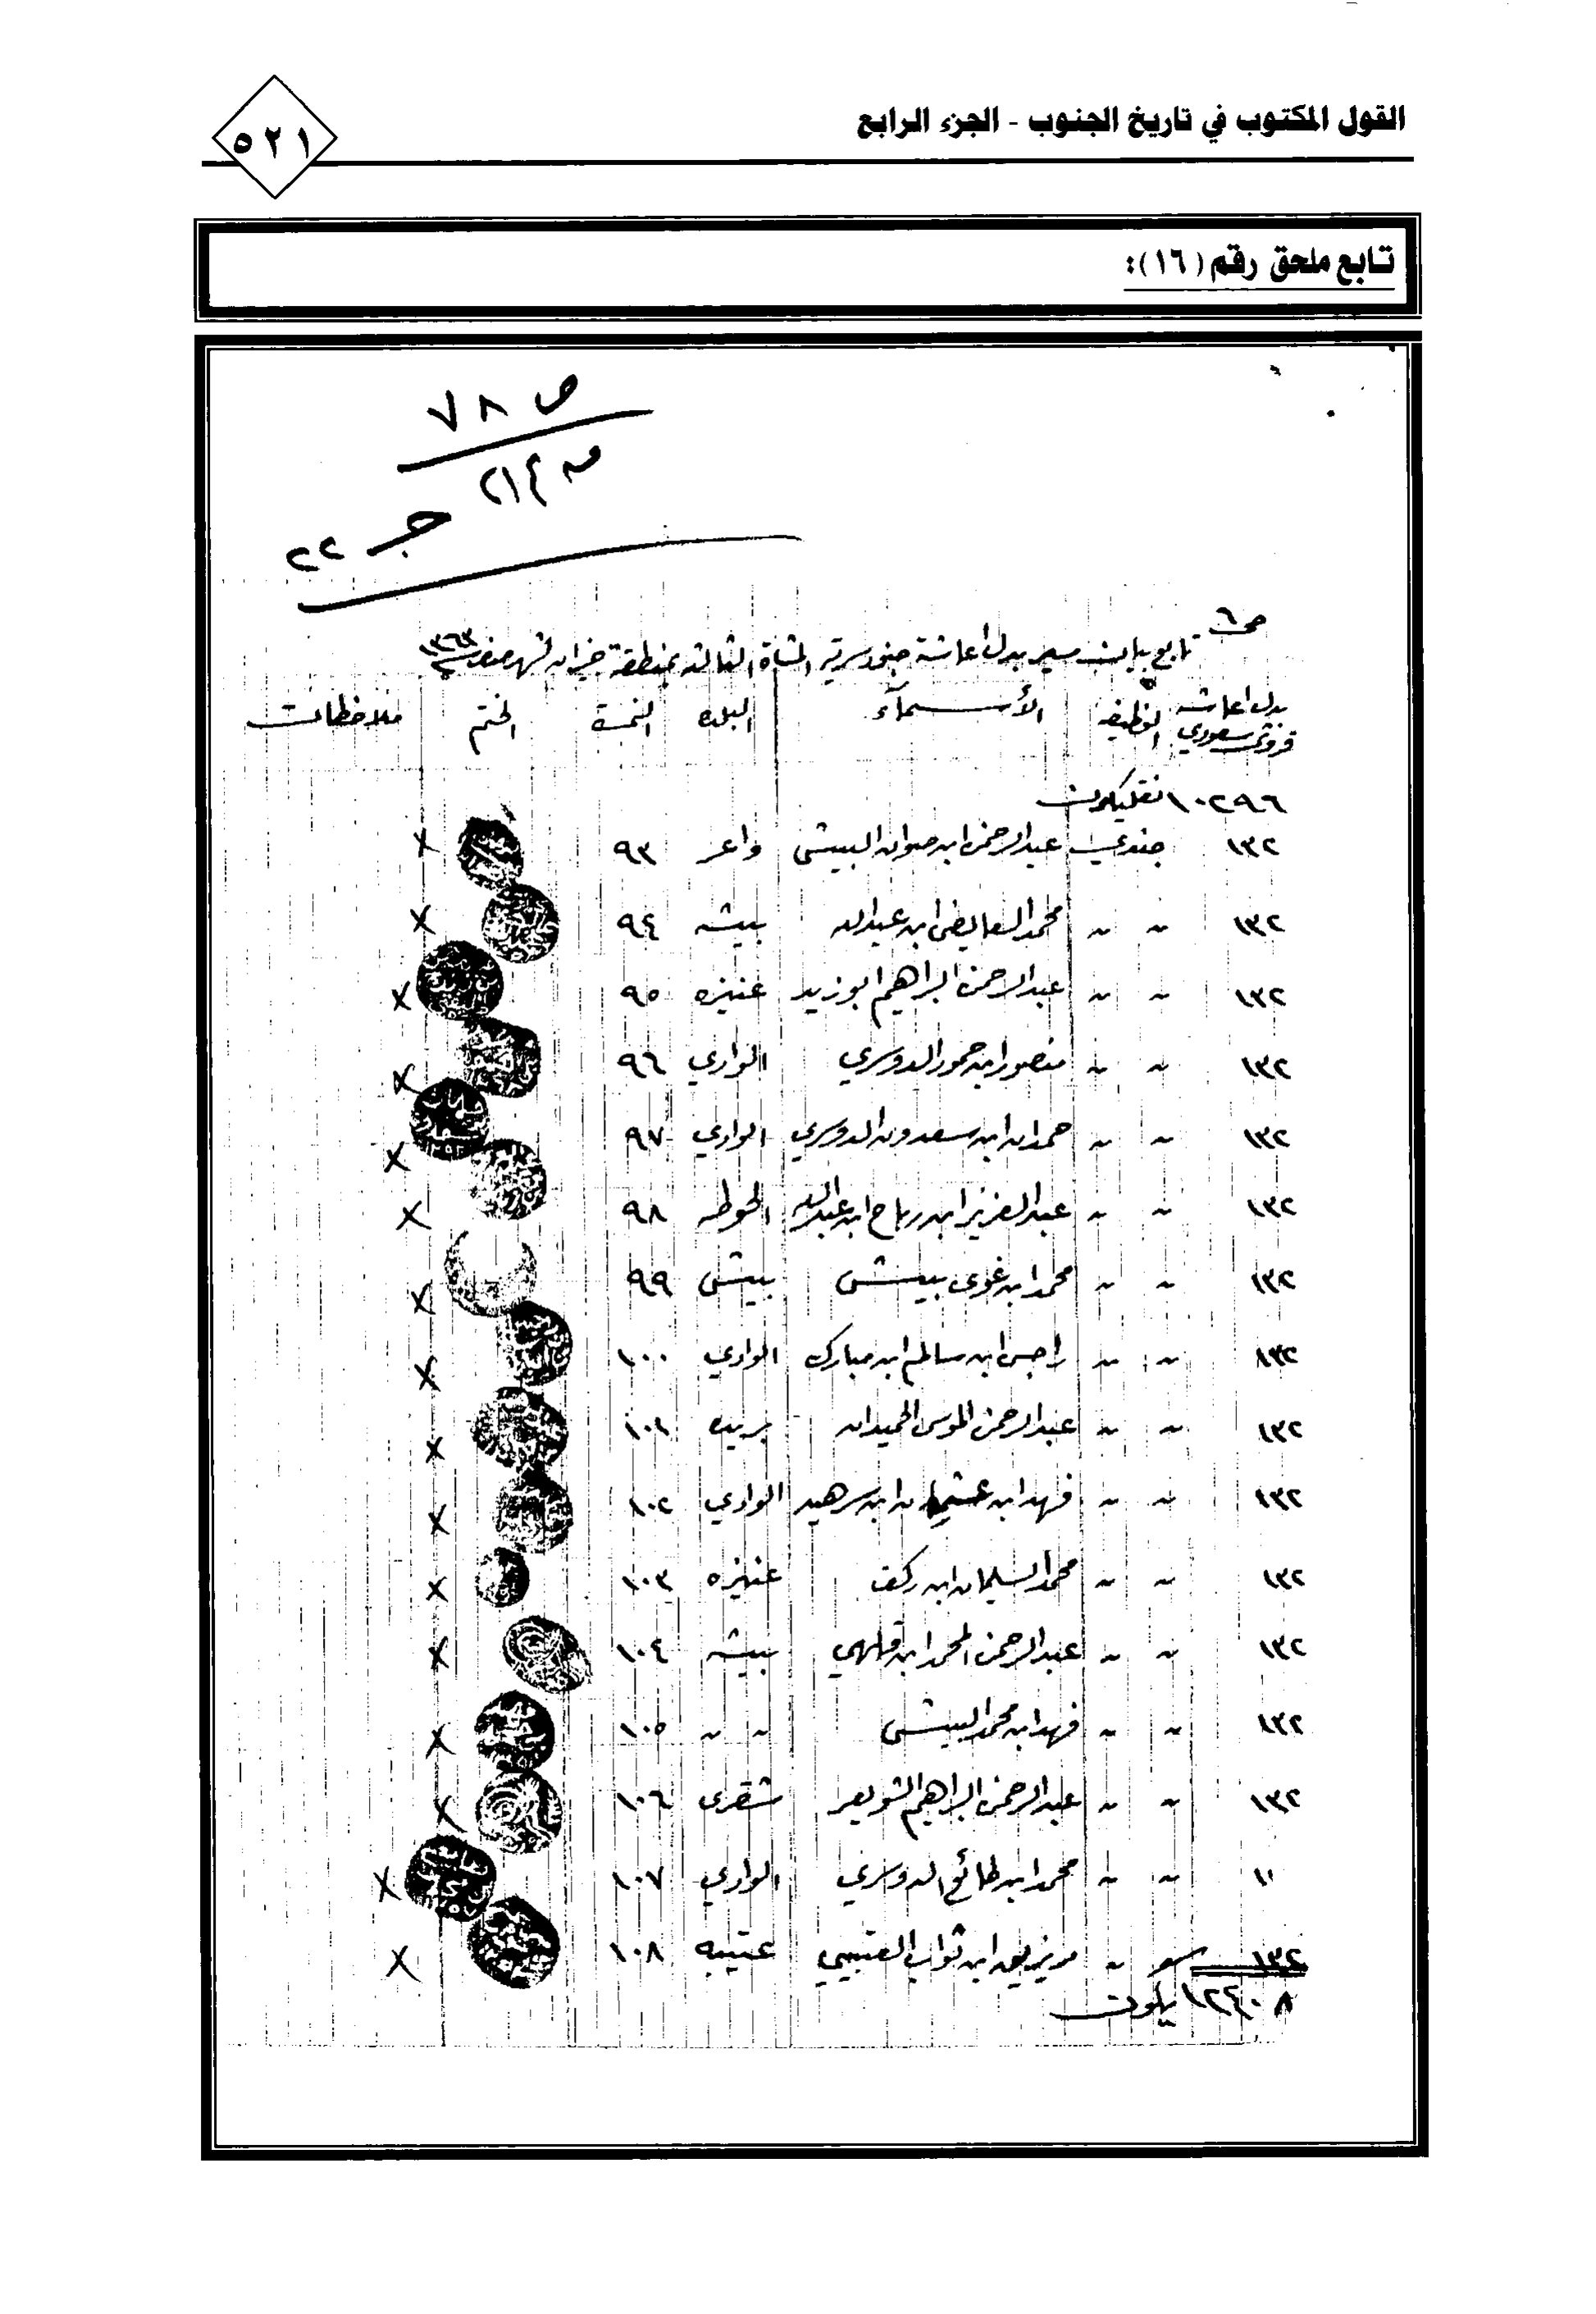 القول المكتوب في تاريخ الجنوب - الجزء الرابع
٥٢١
تابع ملحق رقم (١٦):
ص ٧٨
ص ٢١٤
جـ ٢٢
ص ٦
تابع بيان بدل اعاشة جنود سرية المشاة الثالثة بمنطقة جيزان لشهر صفر ١٣٦٣
بدل اعاشه قروش سعودي الوظيفه الأسمآء البلده النمرة الختم ملاحظات
١٠٢٩٦ نقليكون
١٣٢ جندي عبدالرحمن ابن البيشي واعر ٩٣ ×
١٣٢ " " محمد العايض ابن عبدالله بيشه ٩٤ ×
١٣٢ " " عبدالرحمن البراهيم ابوزيد عنيزه ٩٥ ×
١٣٢ " " منصور ابن حمود الدوسري الوادي ٩٦ ×
١٣٢ " " حمدان ابن سعدون الدوسري الوادي ٩٧ ×
١٣٢ " " عبدالعزيز ابن رباح ابن عبدالله الحوطه ٩٨ ×
١٣٢ " " محمد ابن بيشي بيشى ٩٩ ×
١٣٢ " " راجس ابن سالم ابن مبارك الوادي ١٠٠ ×
١٣٢ " " عبدالرحمن الموسى الحميدان بريده ١٠١ ×
١٣٢ " " فهد ابن عثمان ابن سرهيد الوادي ١٠٢ ×
١٣٢ " " محمد السليمان ابن ركف عنيزه ١٠٣ ×
١٣٢ " " عبدالرحمن المحمد ابن بيشه ١٠٤ ×
١٣٢ " " فهد ابن محمد البيشي " " ١٠٥ ×
١٣٢ " " عبدالرحمن البراهيم الشويعر شقرى ١٠٦ ×
١١ " " محمد ابن الدوسري الوادي ١٠٧ ×
١٣٢ " ابن ثواب العتيبي عتيبه ١٠٨ ×
١٢٤٠٨ يكون